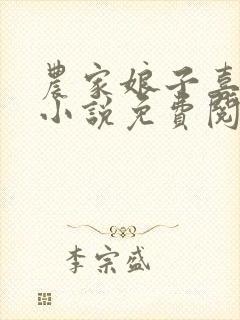 農家娘子喜
小說免費閱
李宗盛